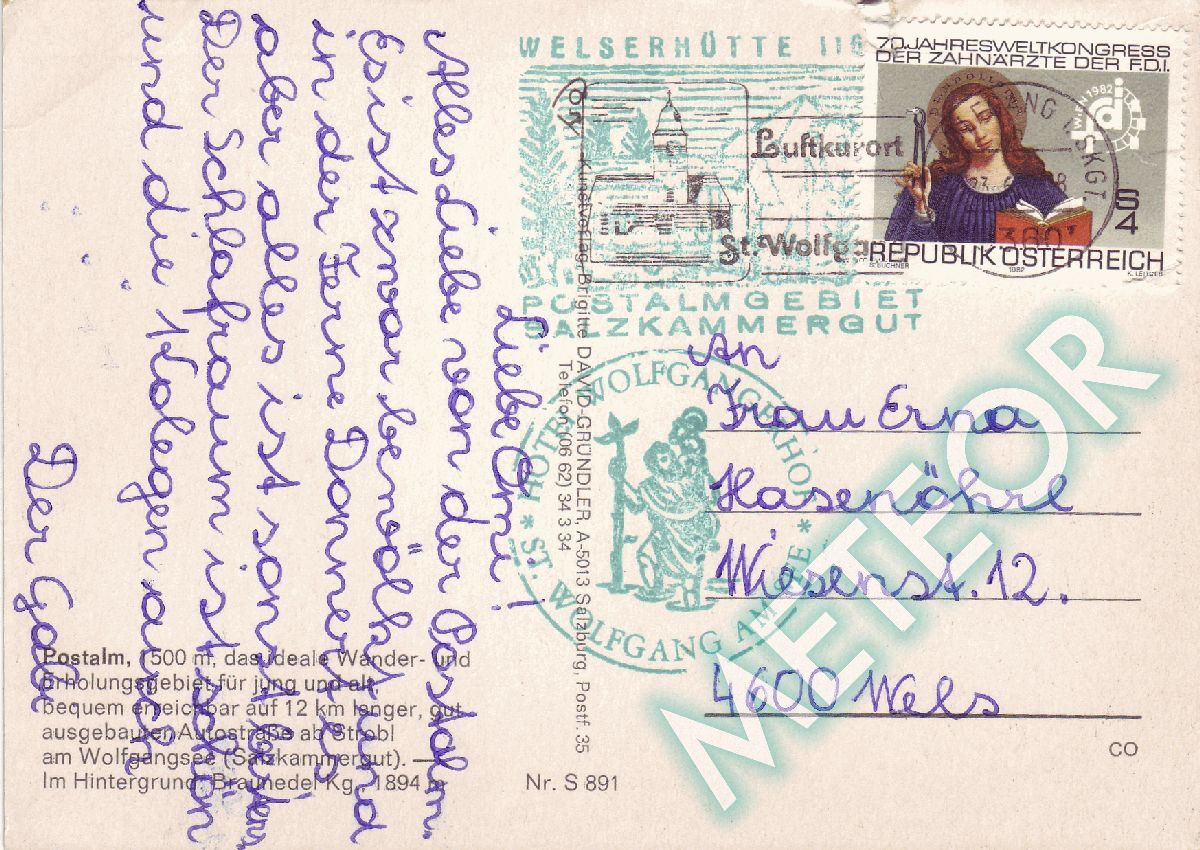 Liebe Omi!
Alles Liebe von der Postalm.
Es ist zwar benöhlt und
in der Ferne Donnert es
aber alles ist sonst
Der Schlafraum ist schön
und die Kolegen auch
Der Gabi.
WELSERHÜTTE
POSTALMGEBIET
SALZKAMMERGUT
Luftkurort
St. Wolfgang
70.JAHRESWELTKONGRESS
DER ZAHNÄRZTE DER F.D.I.
WIEN 1982
S4
REPUBLIK ÖSTERREICH
1982
HOTEL WOLFGANGERHOF
* ST. WOLFGANG AM SEE *
Kunstverlag Brigitte DAVID-GRÜNDLER, A-5013 Salzburg, Postf. 35
Telefon (06 62) 34 3 34
An
Frau Erna
Hasenöhrl
Wiesenst. 12.
4600 Wels
Postalm, 1500 m, das ideale Wander- und
Erholungsgebiet für jung und alt,
bequem erreichbar auf 12 km langer, gut
ausgebauter Autostraße ab Strobl
am Wolfgangsee (Salzkammergut). —
Im Hintergrund: Braunedel Kg. 1894 m
Nr. S 891
CO
METEOR